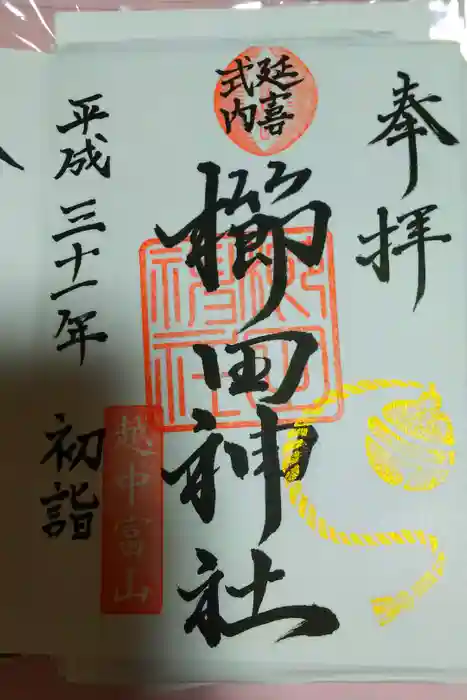 奉拝
延喜
式内
櫛田神社
越中富山
平成三十一年 初詣